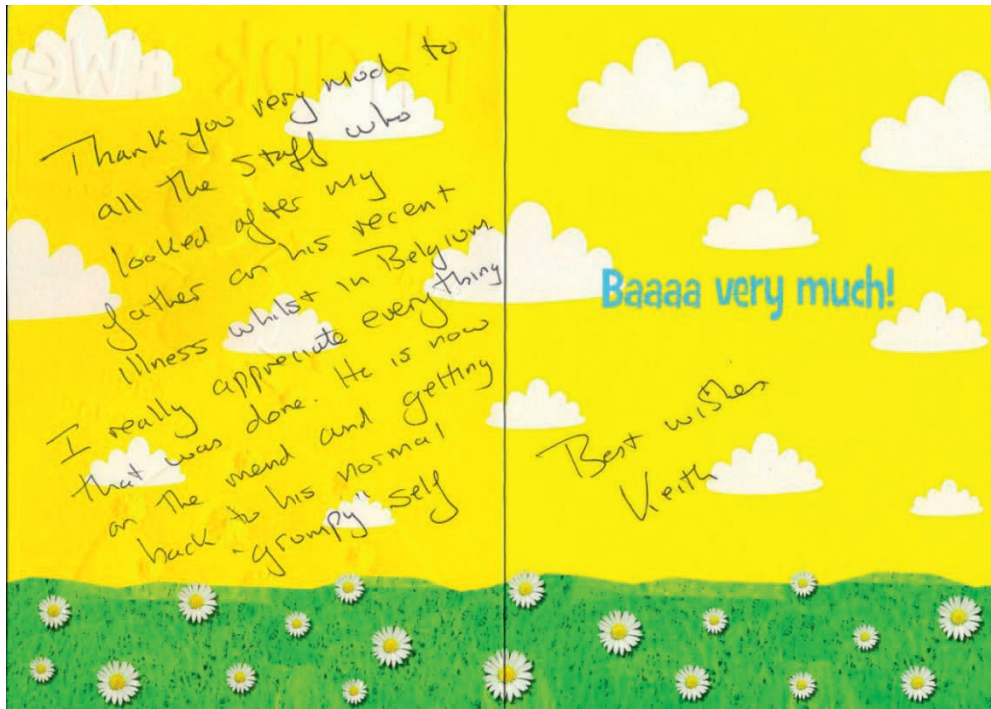 Thank you very much to
all the staff who
looked after my
father on his recent
illness whilst in Belgium.
I really appreciate everything
that was done. He is now
on the mend and getting
back to his normal
"grumpy" self
Baaaa very much!
Best wishes
Keith